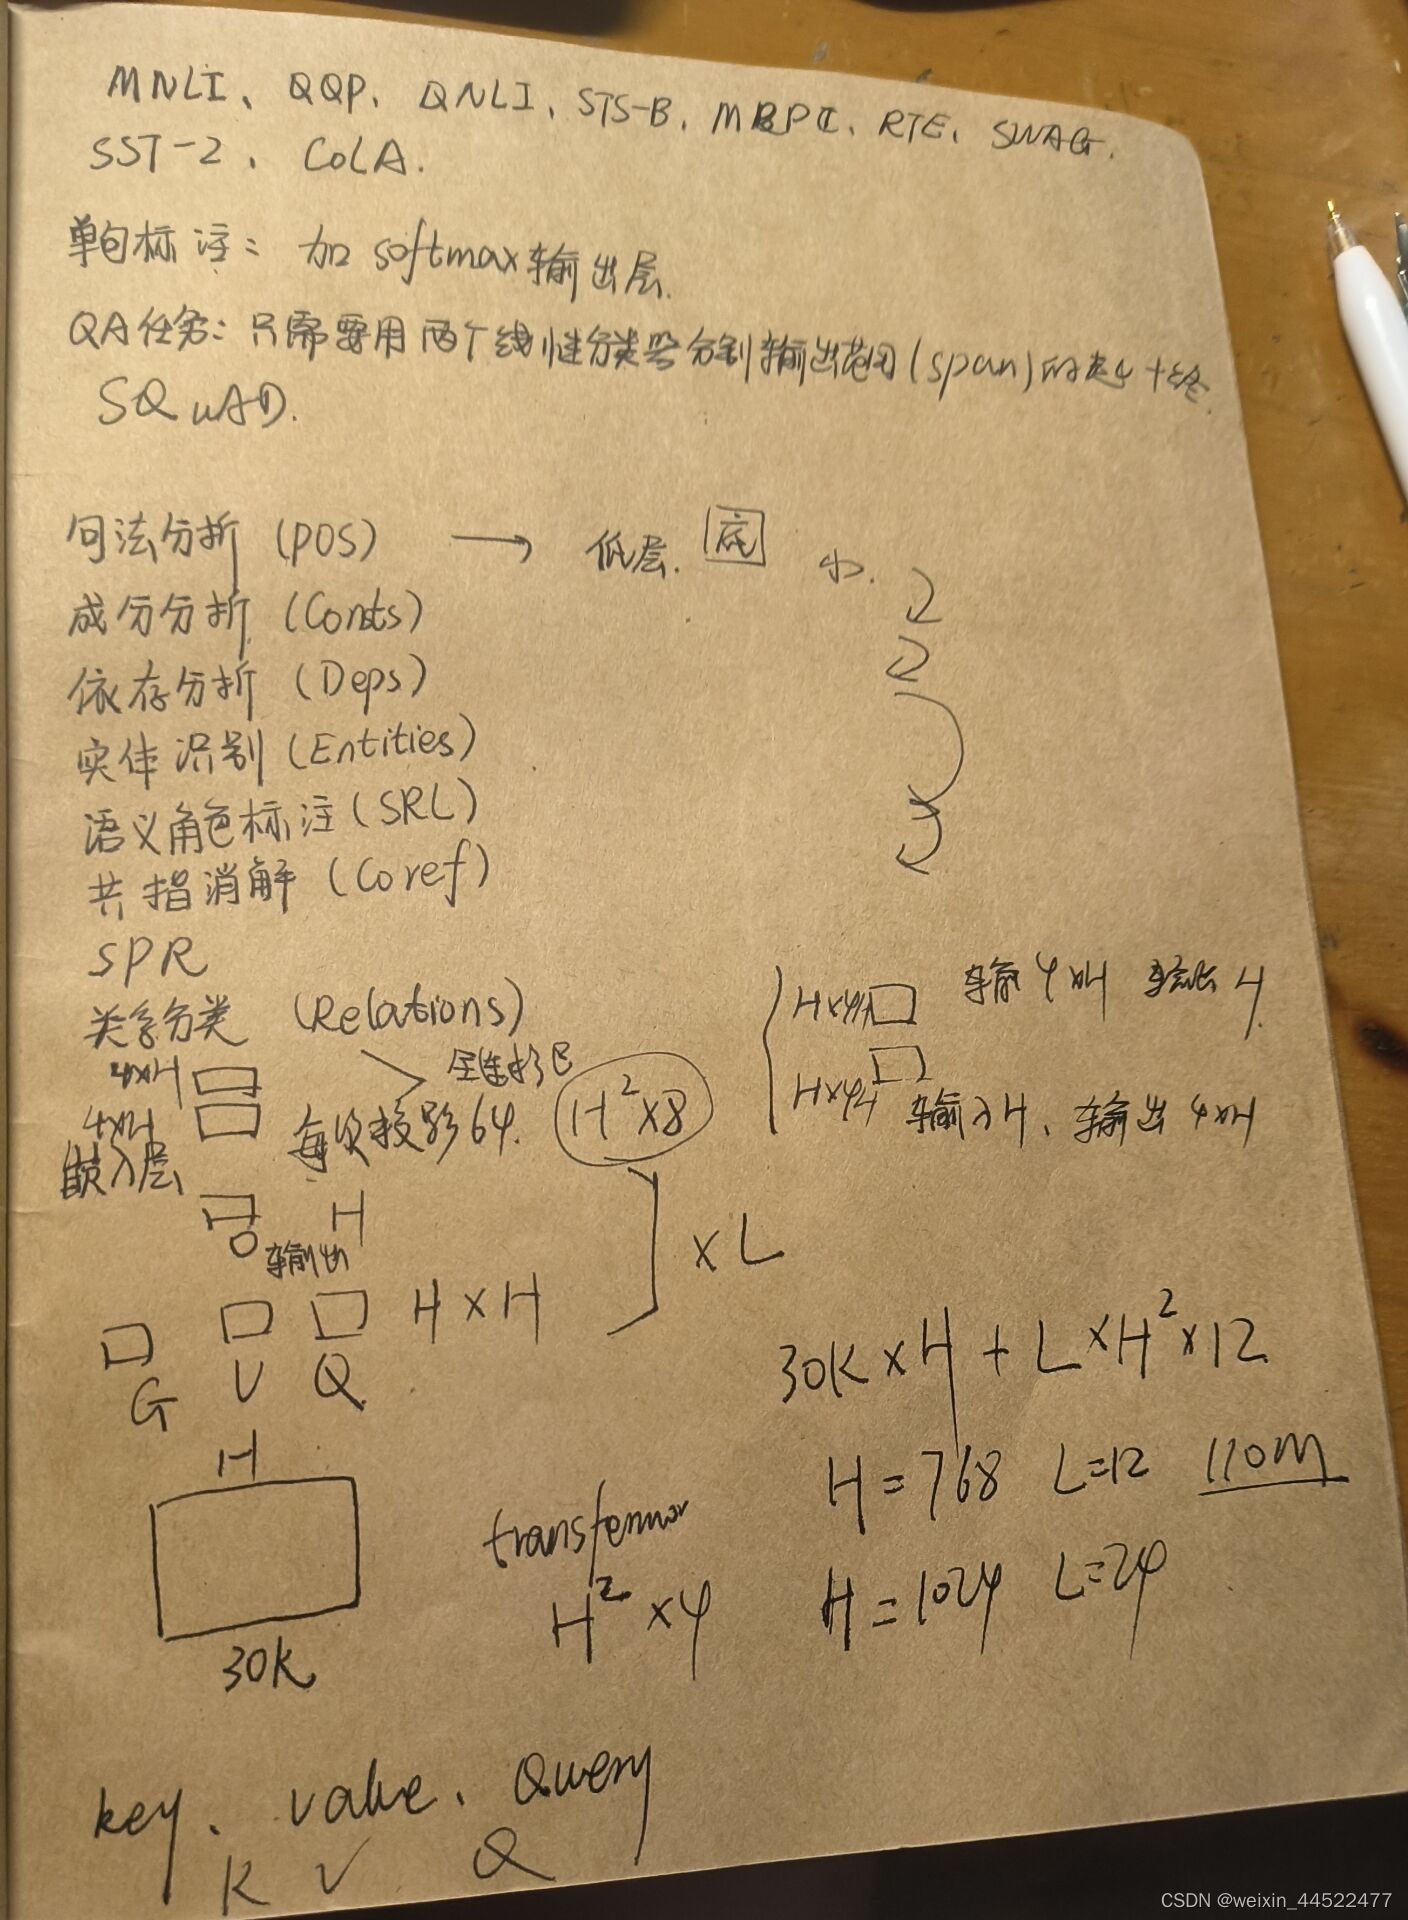 MNLI、QQP、QNLI、STS-B、MRPC、RTE、SWAG.
SST-2、CoLA.
单句标注：加softmax输出层.
QA任务：只需要用两个线性分类器分别输出范围(span)的起、终.
SQuAD.
句法分析(POS) → 低层. 底 小.
成分分析(Consts)
依存分析(Deps)
实体识别(Entities)
语义角色标注(SRL)
共指消解(Coref)
SPR
关系分类(Relations)
H×4H 输 4×H 输出 H.
H×4H 输入H、输出 4×H
4×H
4×H
嵌入层
每次投影64.
H²×8
H
输出
H×H
×L
G V Q
30K×H + L×H²×12
H=768 L=12 110M
H=1024 L=24
H
30K
transformer
H²×4
key、value、Query
K V Q
CSDN @weixin_44522477